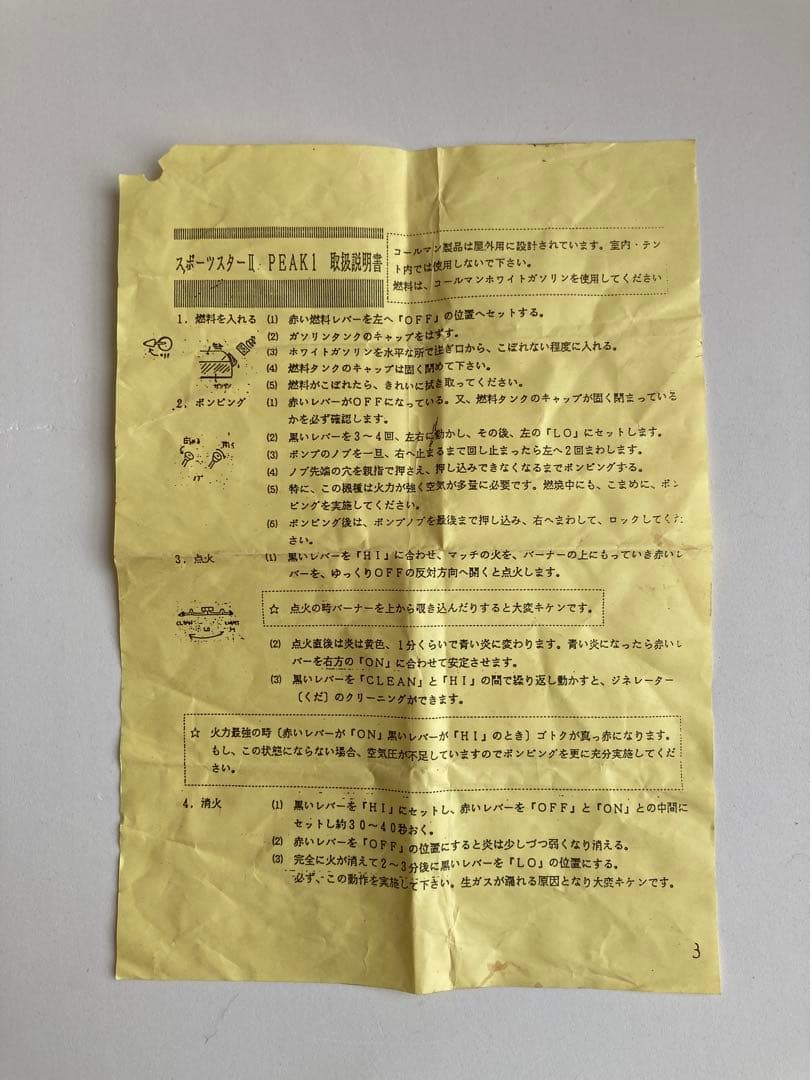 スポーツスターⅡ PEAK1 取扱説明書
コールマン製品は屋外用に設計されています。室内・テン
ト内では使用しないで下さい。
燃料は、コールマンホワイトガソリンを使用してください
1. 燃料を入れる (1) 赤い燃料レバーを左へ「OFF」の位置へセットする。
(2) ガソリンタンクのキャップをはずす。
(3) ホワイトガソリンを水平な所で注ぎ口から、こぼれない程度に入れる。
(4) 燃料タンクのキャップは固く閉めて下さい。
(5) 燃料がこぼれたら、きれいに拭き取ってください。
2. ポンピング (1) 赤いレバーがOFFになっている。又、燃料タンクのキャップが固く閉まっている
かを必ず確認します。
(2) 黒いレバーを3〜4回、左右に動かし、その後、左の「LO」にセットします。
(3) ポンプのノブを一旦、右へ止まるまで回し止まったら左へ2回まわします。
(4) ノブ先端の穴を親指で押さえ、押し込みできなくなるまでポンピングする。
(5) 特に、この機種は火力が強く空気が多量に必要です。燃焼中にも、こまめに、ポン
ピングを実施してください。
(6) ポンピング後は、ポンプノブを最後まで押し込み、右へまわして、ロックしてくだ
さい。
3. 点火 (1) 黒いレバーを「HI」に合わせ、マッチの火を、バーナーの上にもっていき赤いレ
バーを、ゆっくりOFFの反対方向へ開くと点火します。
CLEAN LO HI
☆ 点火の時バーナーを上から覗き込んだりすると大変キケンです。
(2) 点火直後は炎は黄色、1分くらいで青い炎に変わります。青い炎になったら赤いレ
バーを右方の「ON」に合わせて安定させます。
(3) 黒いレバーを「CLEAN」と「HI」の間で繰り返し動かすと、ジネレーター
〔くだ〕のクリーニングができます。
☆ 火力最強の時〔赤いレバーが「ON」黒いレバーが「HI」のとき〕ゴトクが真っ赤になります。
もし、この状態にならない場合、空気圧が不足していますのでポンピングを更に充分実施してくだ
さい。
4. 消火 (1) 黒いレバーを「HI」にセットし、赤いレバーを「OFF」と「ON」との中間に
セットし約30〜40秒おく。
(2) 赤いレバーを「OFF」の位置にすると炎は少しづつ弱くなり消える。
(3) 完全に火が消えて2〜3分後に黒いレバーを「LO」の位置にする。
必ず、この動作を実施して下さい。生ガスが漏れる原因となり大変キケンです。
3